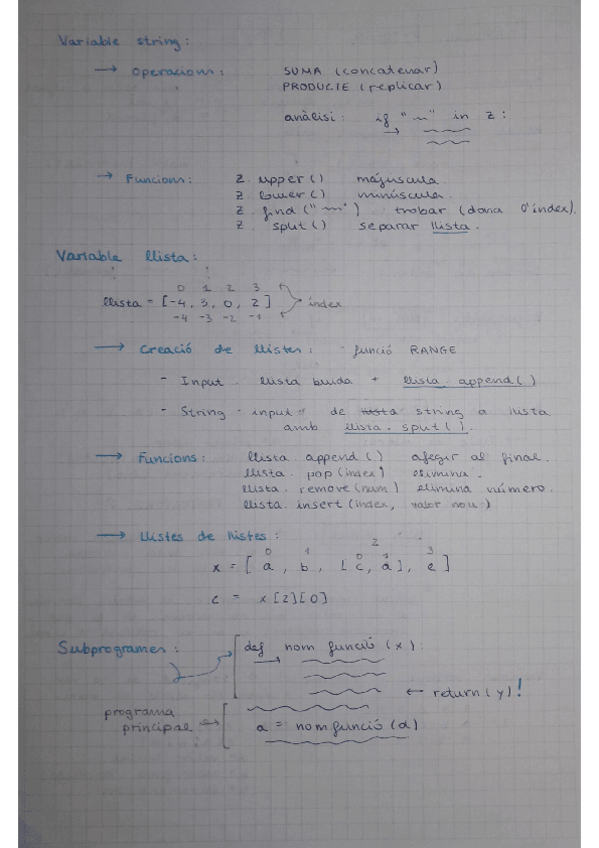 Variable string:
→ Operacions: SUMA (concatenar)
PRODUCTE (replicar)
anàlisi: if "~" in z:
→ Funcions: z. upper() majúscula
z. lower() minúscula.
z. find("~") trobar (dona l'índex).
z. split() separar llista.
Variable llista:
0 1 2 3
llista = [-4, 3, 0, 2] índex
-4 -3 -2 -1
→ Creació de llistes: funció RANGE
- Input. llista buida + llista.append()
- String - input: de string a llista
amb llista.split().
→ Funcions: llista.append() afegir al final.
llista.pop(index) elimina.
llista.remove(num) elimina número.
llista.insert(index, valor nou)
→ Llistes de llistes:
0 1 2 3
0 1
x = [a, b, [c, d], e]
c = x[2][0]
Subprogrames: def nom funció (x):
← return(y)!
programa
principal a = nom funció (d)